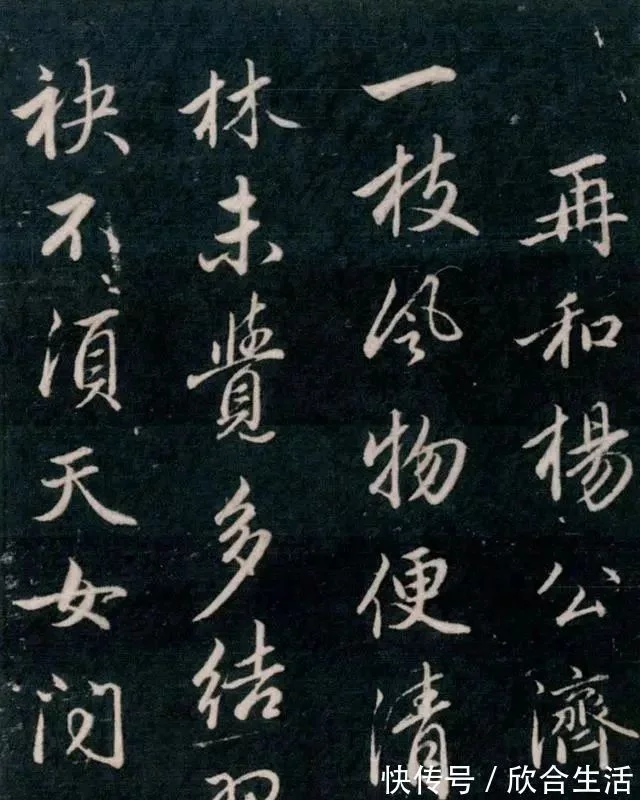 再和楊公濟
一枝風物便清
林未覺多結
袂不湏天女問
快传号 / 欣合生活